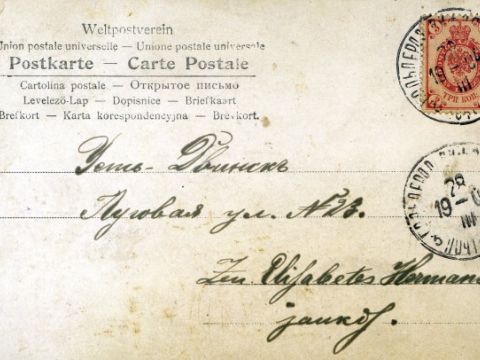 Weltpostverein
Union postale universelle — Unione postale universale
Postkarte — Carte Postale
Cartolina postale — Открытое письмо
Levelező-Lap — Dopisnice — Briefkaart
Brefkort — Karta korespondencyjna — Brevkort.
Усть-Двинскъ
Луговая ул. N 23.
Elisabetes Herman
ТРИ КОП
28
19
III